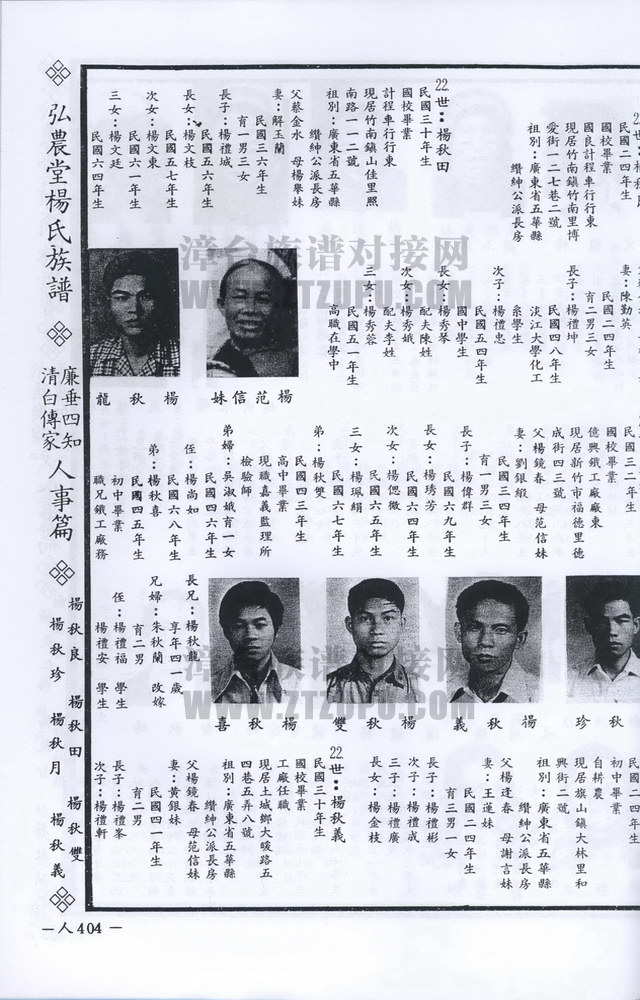 弘農堂楊氏族譜
廉垂四知
清白傳家
人事篇
楊秋良 楊秋田 楊秋雙
楊秋珍 楊秋月 楊秋義
—人404—
民國二四年生
國校畢業
國良計程車行行東
現居竹南鎮竹南里博
愛街一二七巷二號
祖別：廣東省五華縣
鑽紳公派長房
妻：陳勤英
民國二四年生
育二男三女
長子：楊禮坤
民國四八年生
淡江大學化工
系學生
次子：楊禮忠
民國五四年生
國中學生
長女：楊秀琴
配夫陳姓
次女：楊秀娥
配夫李姓
三女：楊秀蓉
民國五一年生
高職在學中
22世：楊秋田
民國三十年生
國校畢業
計程車行行東
現居竹南鎮山佳里照
南路一一二號
祖別：廣東省五華縣
鑽紳公派長房
父蔡金水 母楊舉妹
妻：解玉蘭
民國三六年生
育一男三女
長子：楊禮城
民國五六年生
長女：楊文枝
民國五七年生
次女：楊文東
民國六一年生
三女：楊文廷
民國六四年生
楊范信妹
楊秋龍
民國三二年生
國校畢業
億興鐵工廠廠東
現居新竹市福德里德
成街四三號
父楊鏡春 母范信妹
妻：劉銀緞
民國三四年生
育一男三女
長子：楊偉群
民國六九年生
長女：楊琇芳
民國六四年生
次女：楊偲微
民國六五年生
三女：楊珮絹
民國六七年生
弟：楊秋雙
民國四三年生
高中畢業
現職嘉義監理所
檢驗師
弟婦：吳淑娥育一女
民國四六年生
侄：楊尚如
民國六八年生
弟：楊秋喜
民國四五年生
初中畢業
職兄鐵工廠務
秋珍
楊秋義
楊秋雙
楊秋喜
長兄：楊秋龍
享年四一歲
兄婦：朱秋蘭 改嫁
育二男
侄：楊禮福 學生
楊禮安 學生
民國二四年生
初中畢業
自耕農
現居旗山鎮大林里和
興街二號
祖別：廣東省五華縣
鑽紳公派長房
父楊逢春 母謝言妹
妻：王蓮妹
民國二四年生
育三男一女
長子：楊禮彬
次子：楊禮成
三子：楊禮廣
長女：楊金枝
22世：楊秋義
民國三十年生
國校畢業
工廠任職
現居土城鄉大暖路五
四巷五弄八號
祖別：廣東省五華縣
鑽紳公派長房
父楊鏡春 母范信妹
妻：黃銀妹
民國四一年生
育二男
長子：楊禮峯
次子：楊禮軒
漳台族谱对接网
WWW.ZTZUPU.COM
漳台族谱对接网
WWW.ZTZUPU.COM